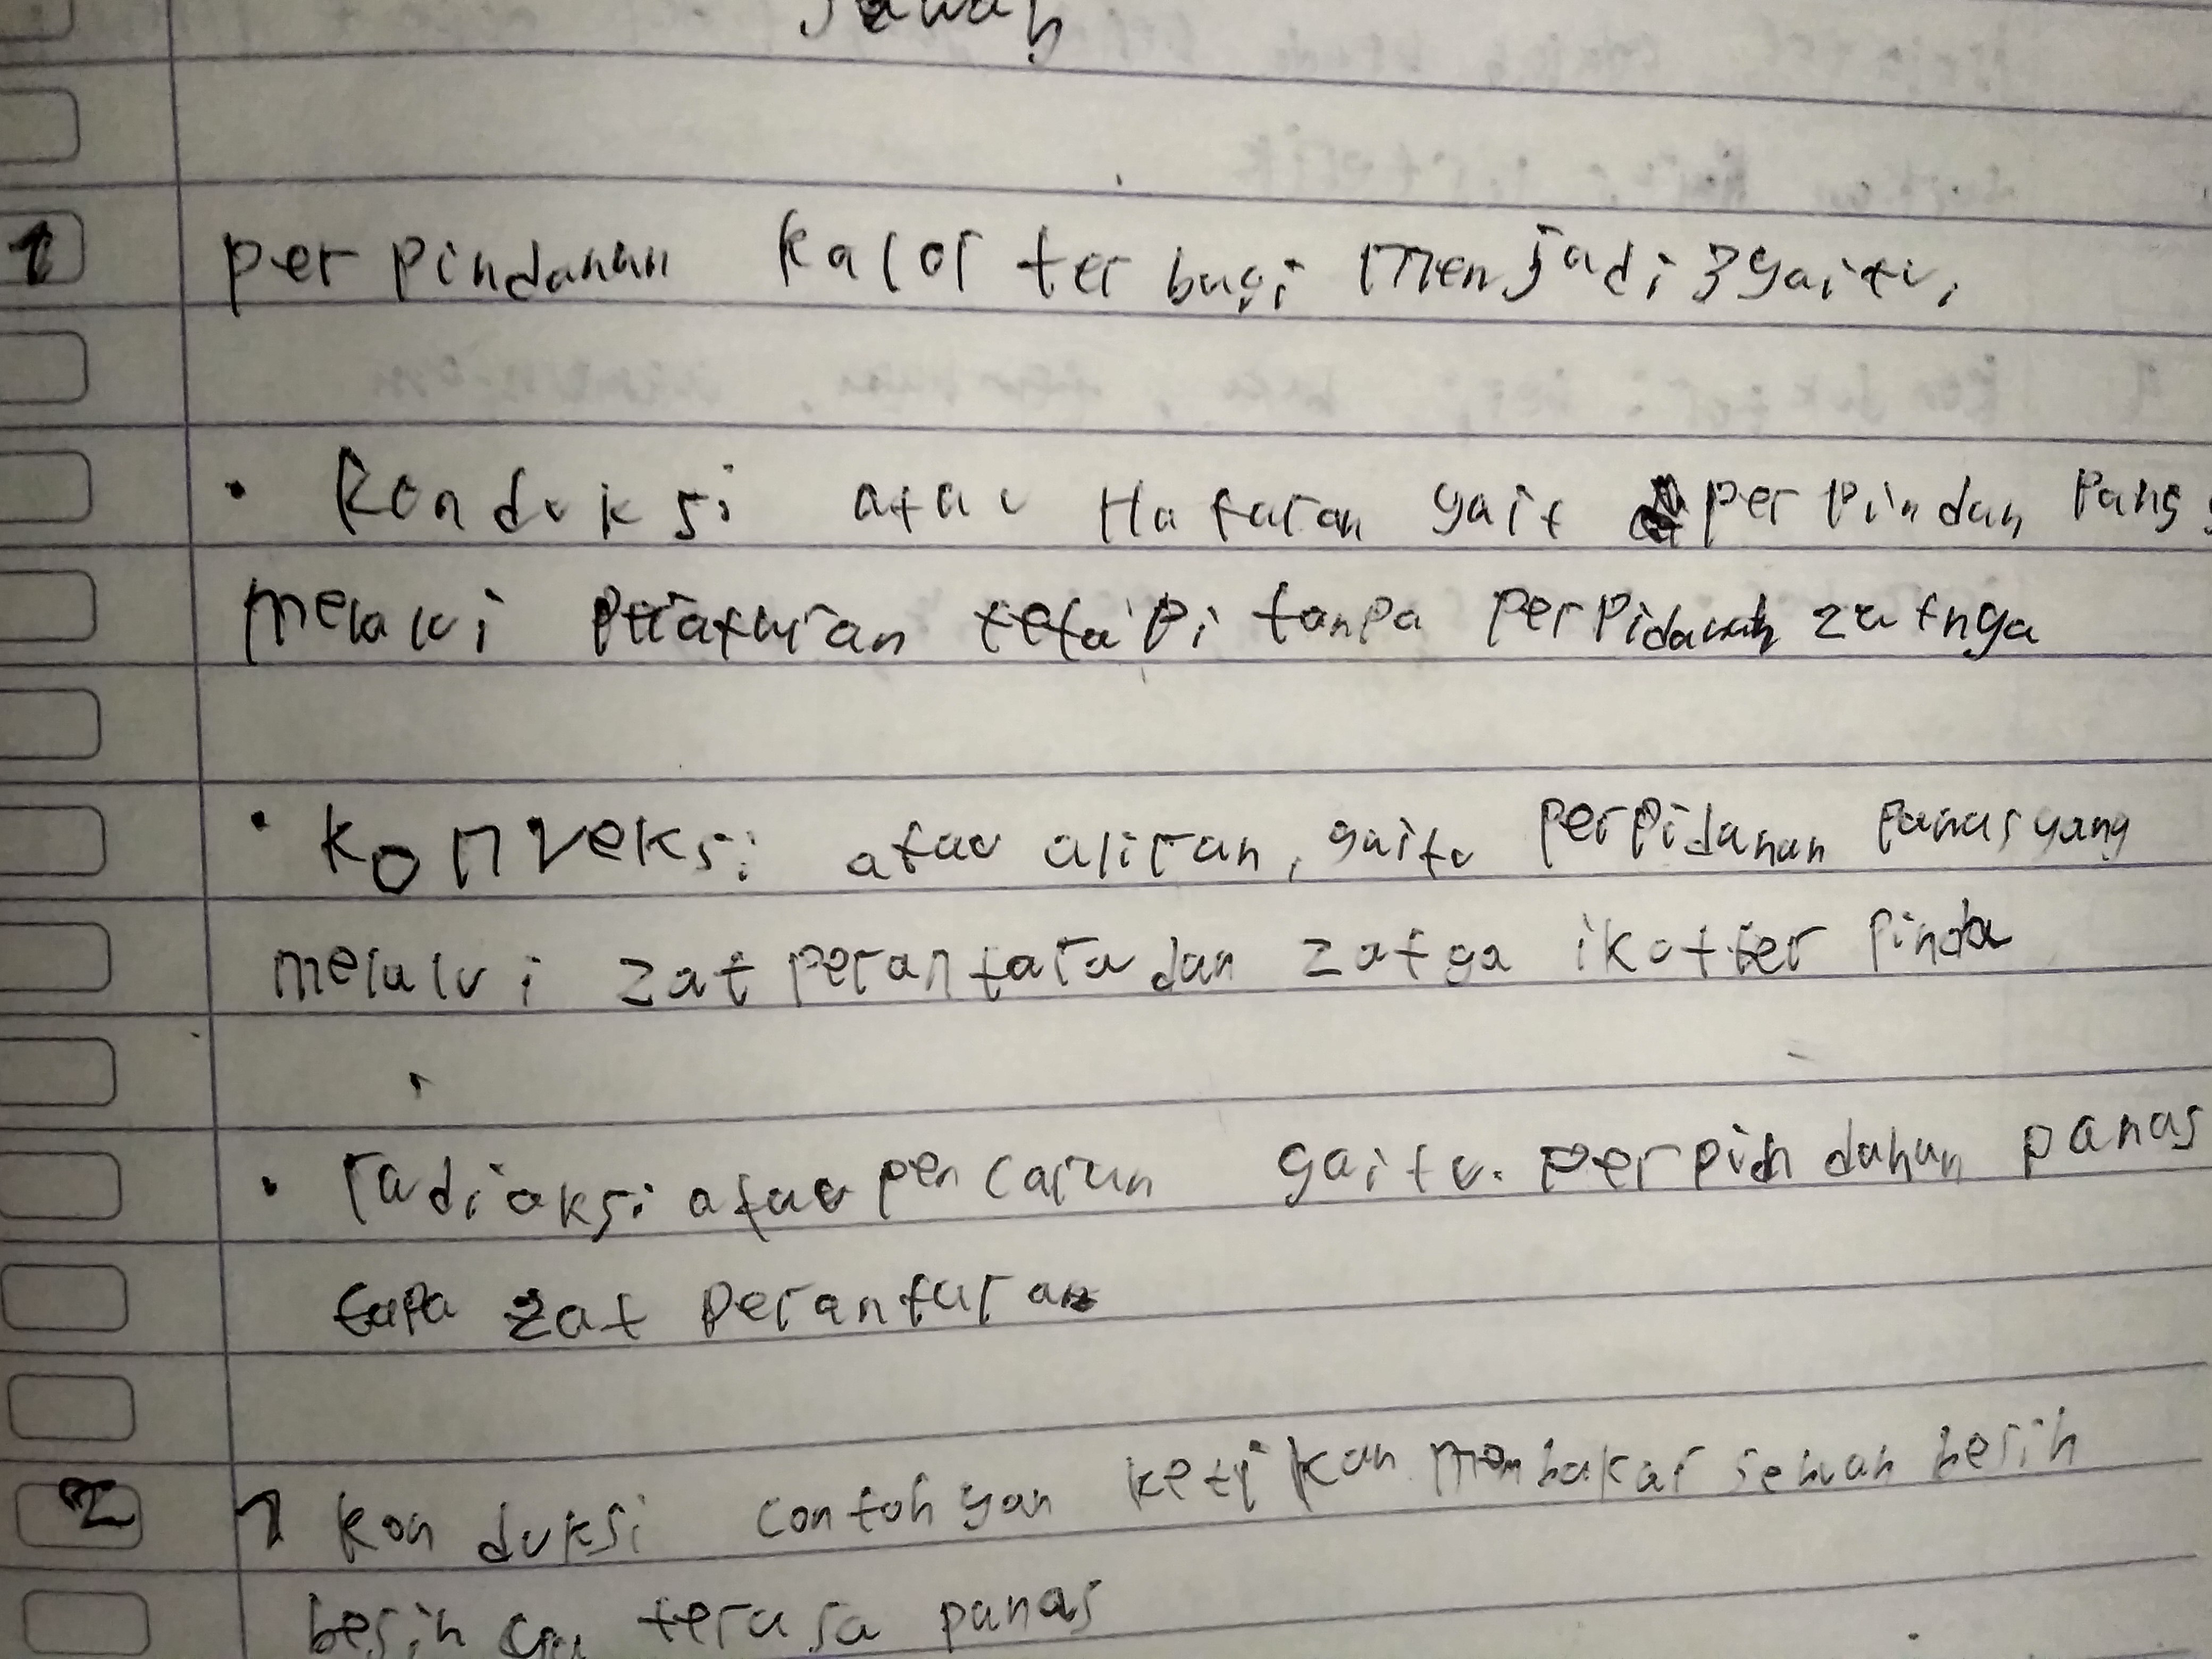 Jawab
1 perpindahan kalor terbagi menjadi 3 yaitu,
• Konduksi atau Hataran yait perpindan panas
melalui tetapi tanpa perpidahah zatnya
• Konveksi atau aliran, yaitu perpidahan panas yang
melalui zat perantara dan zatya ikut ter pinda
• radiaksi atau pencaran yaitu. perpindahan panas
tapa zat perantaran
2 1 konduksi contoh yan ketikan membakar sebuah besih
besih terasa panas